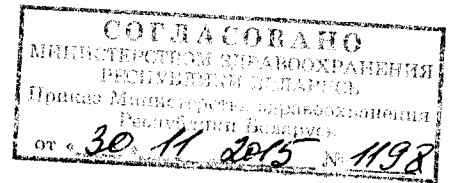 СОГЛАСОВАНО
МИНИСТЕРСТВОМ ЗДРАВООХРАНЕНИЯ
РЕСПУБЛИКИ БЕЛАРУСЬ
Приказ Министерства здравоохранения
Республики Беларусь
от « 30 » 11 2015 № 1198